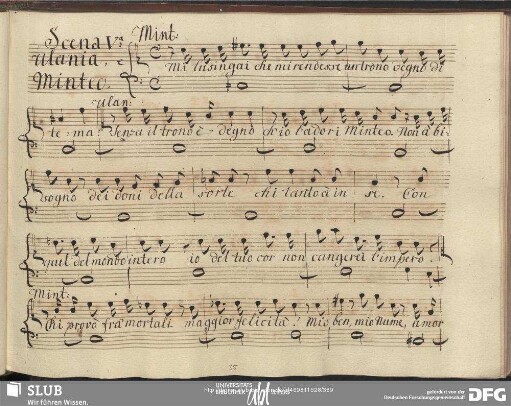 Scena V.ta Mint:
Ulania, e
Minteo.
Mi lusingai che mi rendesse un trono degno di
Ulan:
te = ma Senza il trono è = degno ch'io l'adori Minteo. Non à bi:
sogno dei doni della sorte chi tanto à in se. Con
quel del mondo intero io del tuo cor non cangerei l'impero.
Mint:
Chi provò fra mortali maggior felicità! Mio ben, mio Nume, amor
55
SLUB
Wir führen Wissen.
UNIVERSITÄTS
gefördert von der
Deutschen Forschungsgemeinschaft
DFG